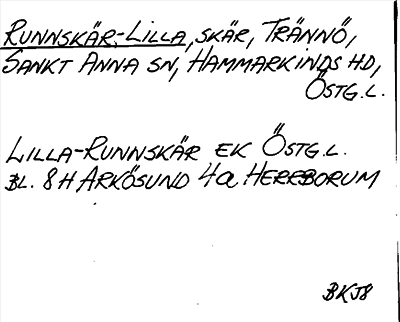 RUNNSKÄR, LILLA, SKÄR, TRÄNNÖ,
SANKT ANNA SN, HAMMARKINDS HD,
ÖSTG.L.
LILLA-RUNNSKÄR EK ÖSTG.L.
BL. 8H ARKÖSUND 4a HERRBORUM
BKJ8